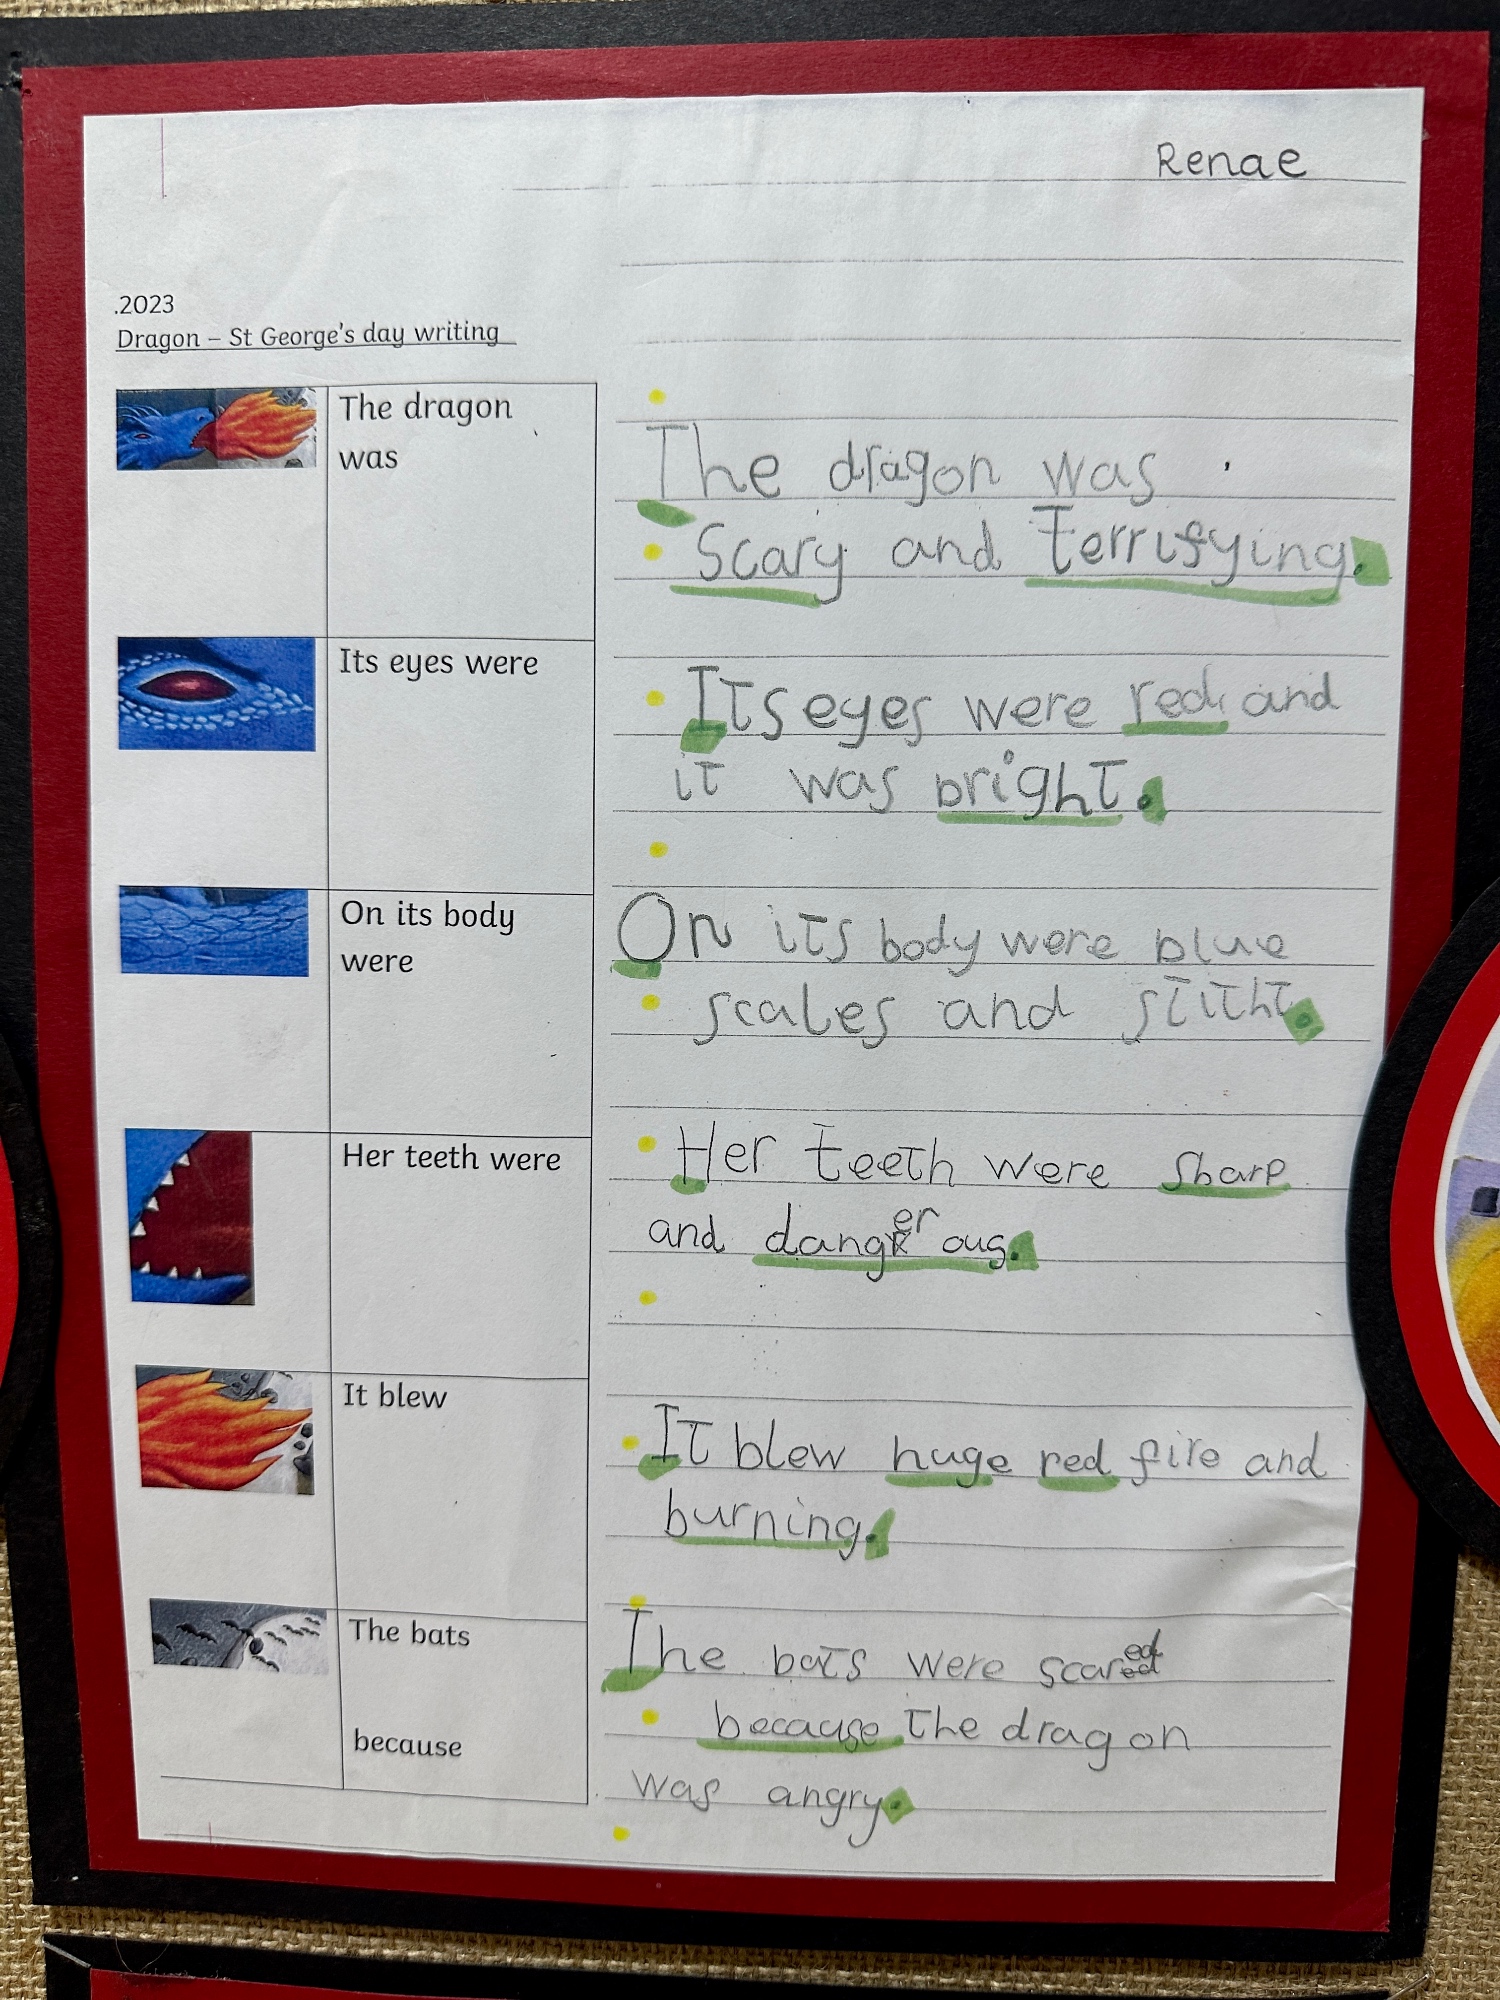 Renae
.2023
Dragon – St George's day writing
The dragon
was
The dragon was
Scary and terrifying.
Its eyes were
Its eyes were red and
it was bright.
On its body
were
On its body were blue
scales and
Her teeth were
Her teeth were sharp
and dangerous.
It blew
It blew huge red fire and
burning.
The bats
because
The bats were scared
because the dragon
was angry.